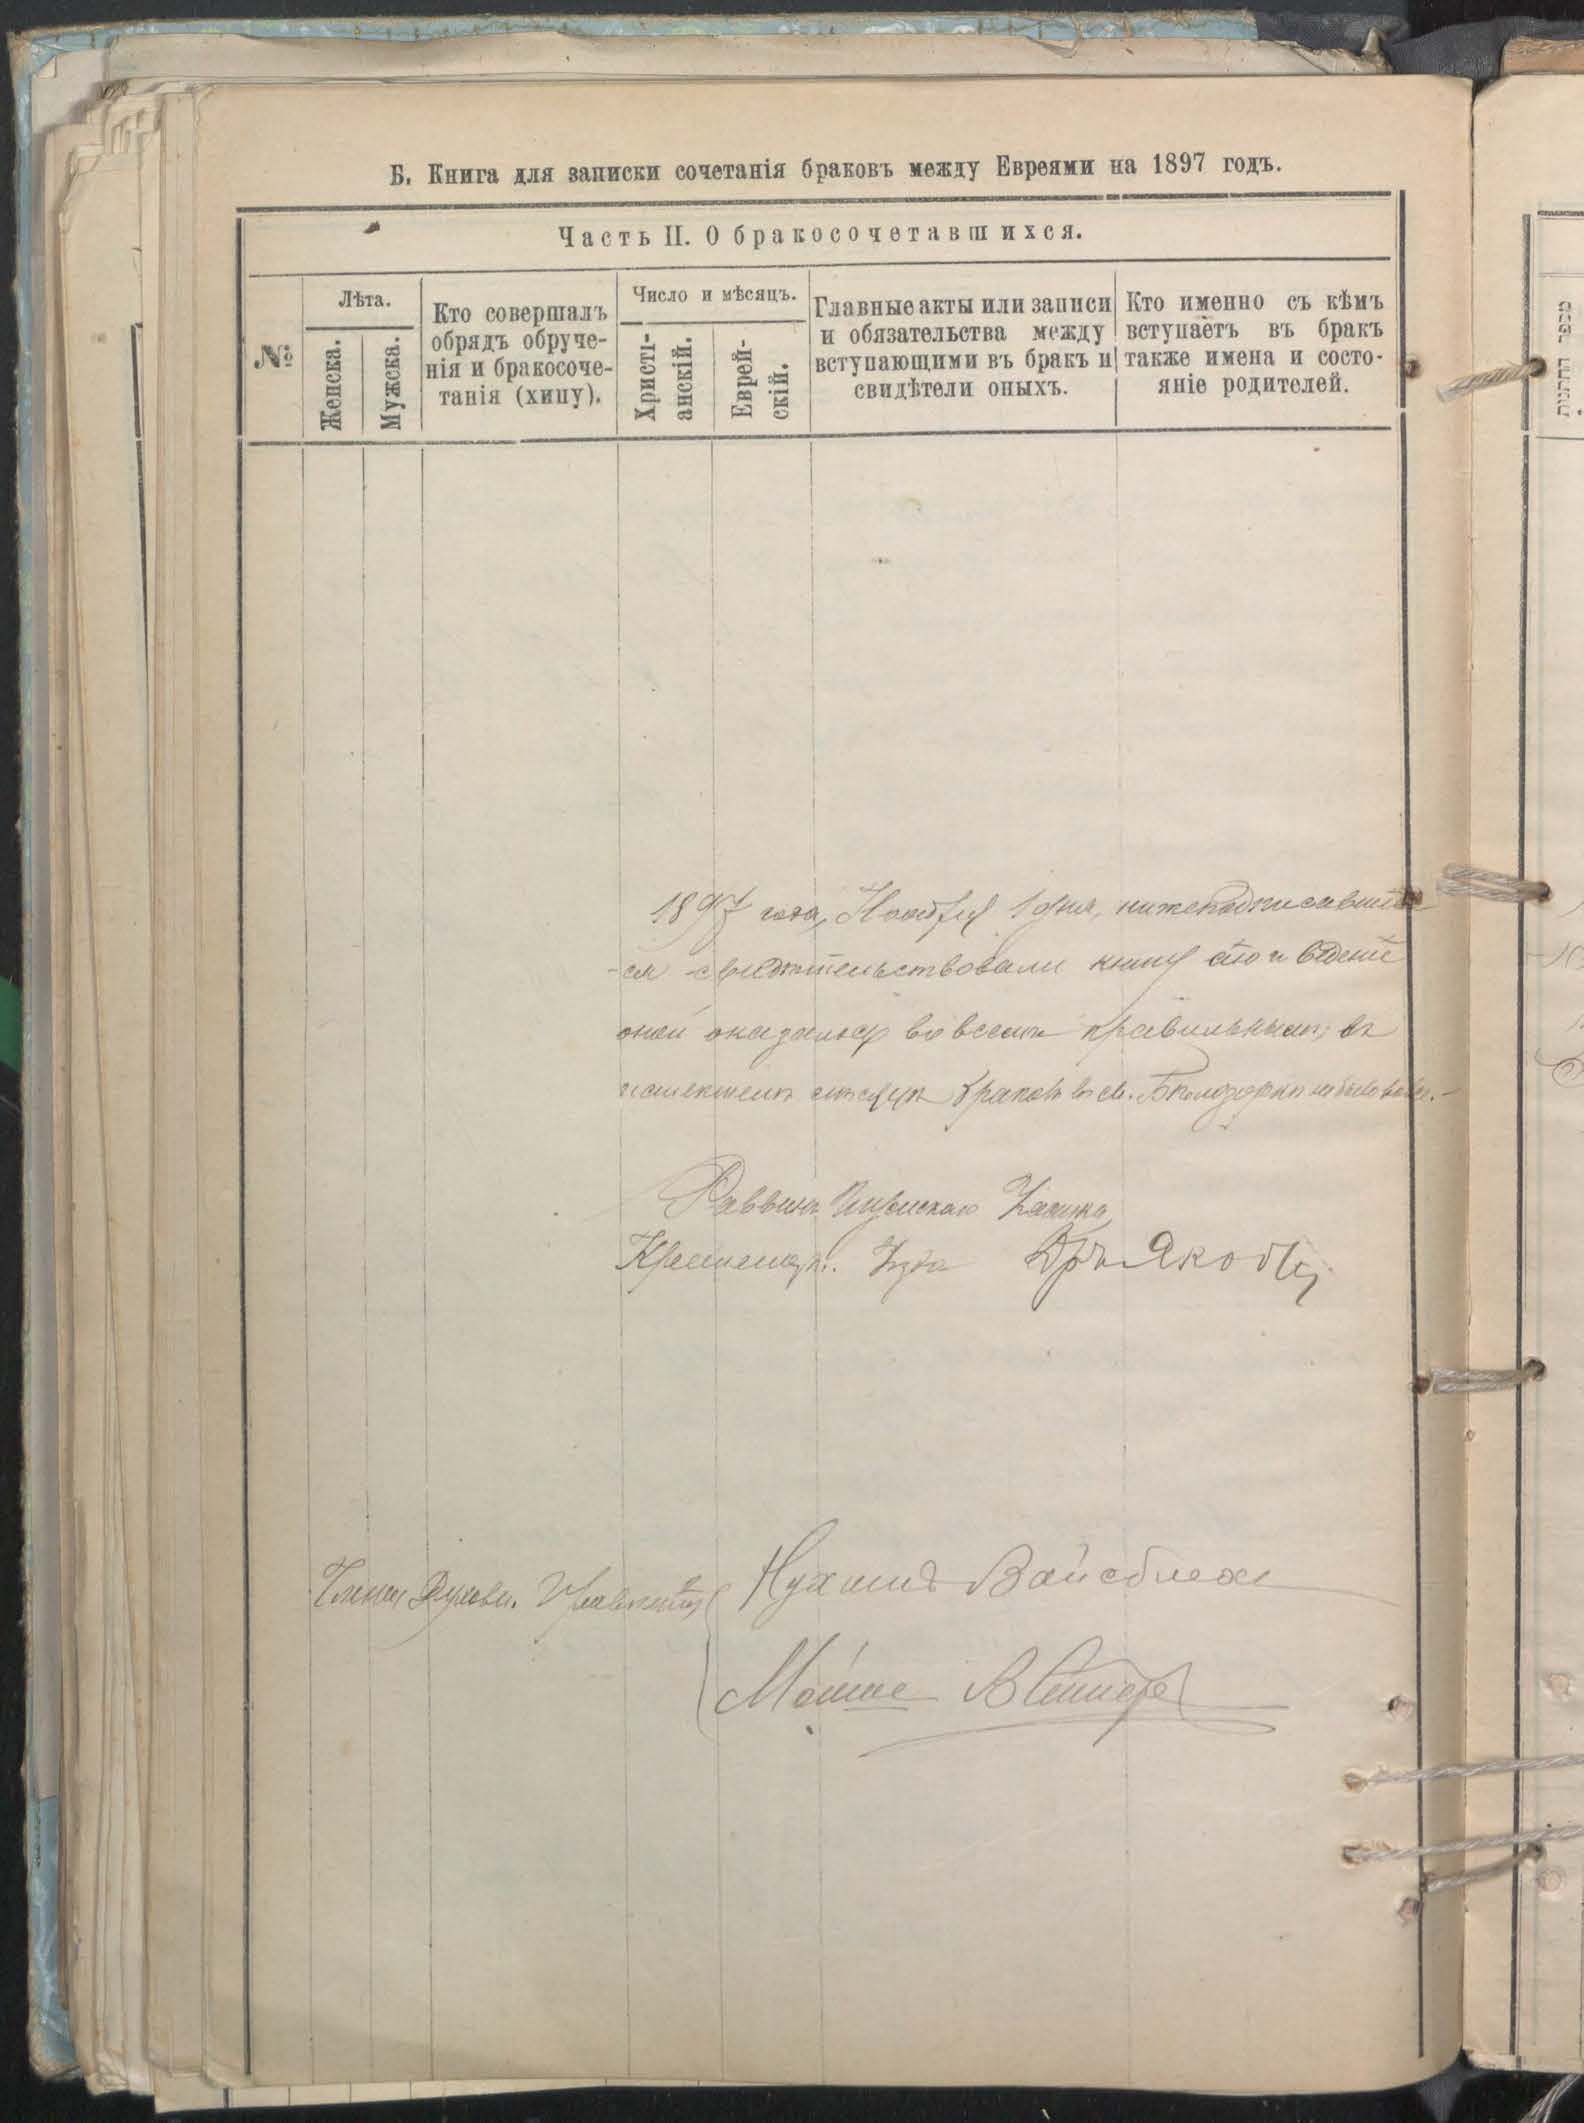 Б. Книга для записки сочетанія браковъ между Евреями на 1897 годъ.
Часть II. О бракосочетавшихся.
№
Лѣта.
Женска.
Мужска.
Кто совершалъ
обрядъ обруче-
нія и бракосоче-
танія (хипу).
Число и мѣсяцъ.
Христі-
анскій.
Еврей-
скій.
Главные акты или записи
и обязательства между
вступающими въ бракъ и
свидѣтели оныхъ.
Кто именно съ кѣмъ
вступаетъ въ бракъ
также имена и состо-
яніе родителей.
1897 года, Ноября 1 дня, нижеподписавшіе
-ся свидѣтельствовали книгу сію и веденіе
оной оказалось во всемъ правильнымъ, въ
истекшемъ мѣсяцѣ браковъ въ м. не было
Раввинъ
Кременецк. Уѣзда Дръ Якобсъ
Члены Духовн. Правленія
Нухимъ Вайсблехъ
Мойше
מספר הדתנית